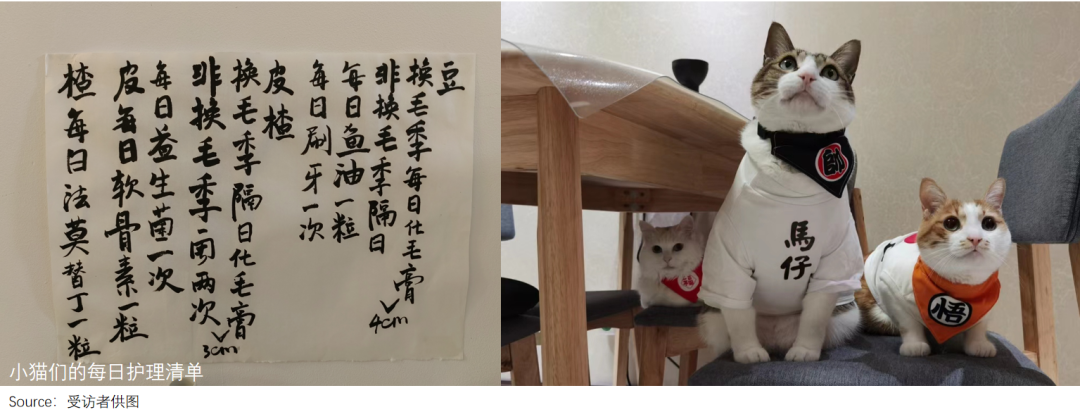 豆
换毛季每日化毛膏
4cm
非换毛季隔日
每日鱼油一粒
每日刷牙一次
皮楂
换毛季隔日化毛膏
3cm
非换毛季周两次
每日益生菌一次
皮每日软骨素一粒
楂每日法莫替丁一粒
小猫们的每日护理清单
帥
馬仔
悟
Source：受访者供图